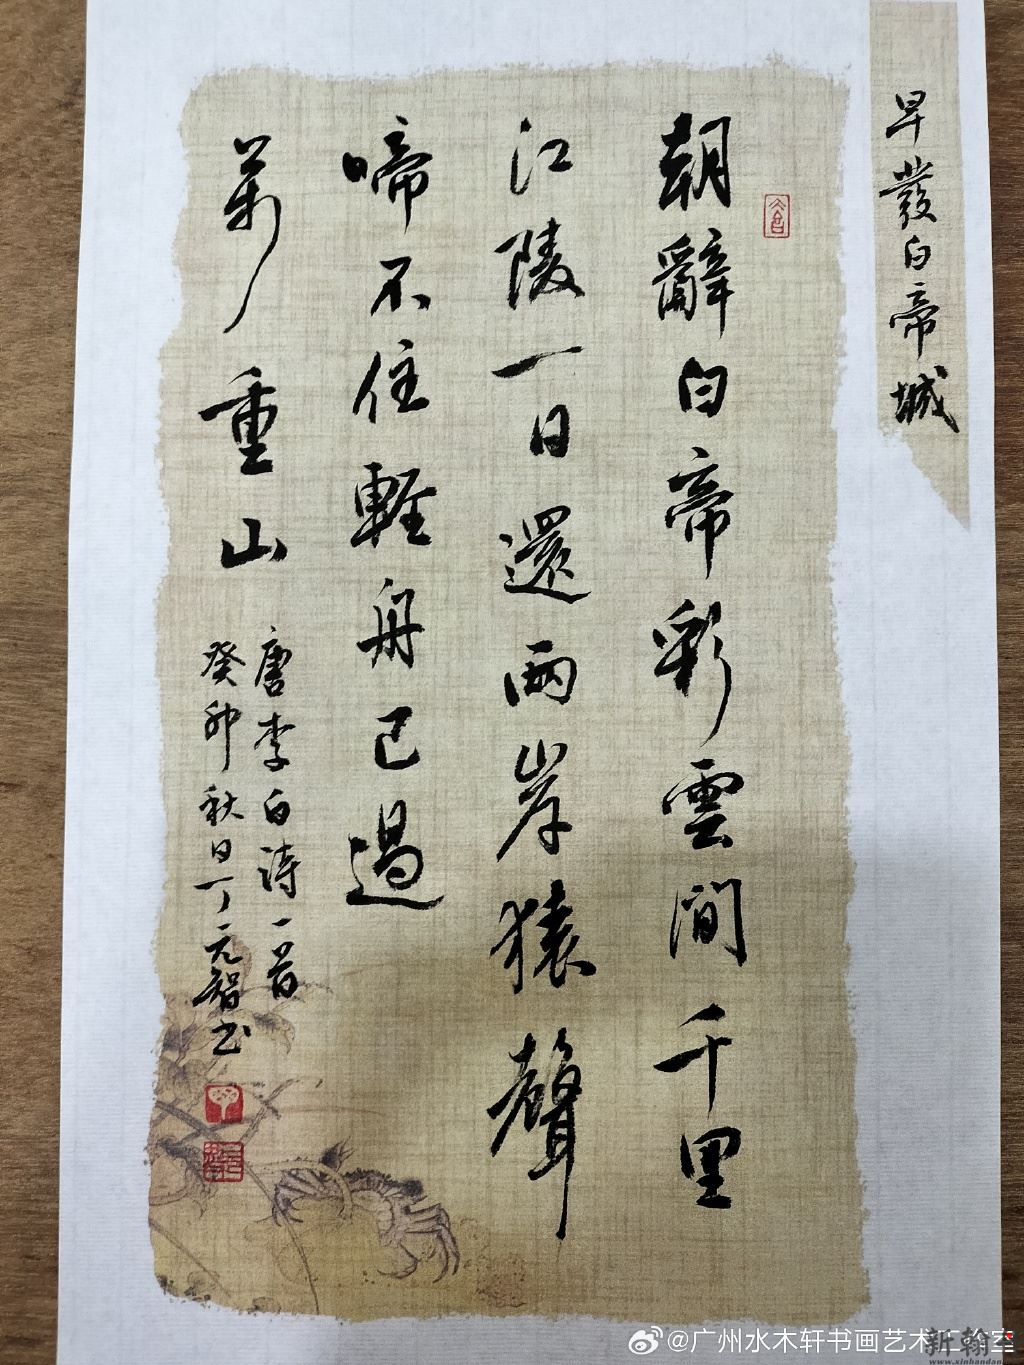 早發白帝城
朝辭白帝彩雲間千里
江陵一日還兩岸猿聲
啼不住輕舟已過
萬重山
唐李白詩一首
癸卯秋日丁元智书
@广州水木轩书画艺术工作室
新翰
www.xinhandan